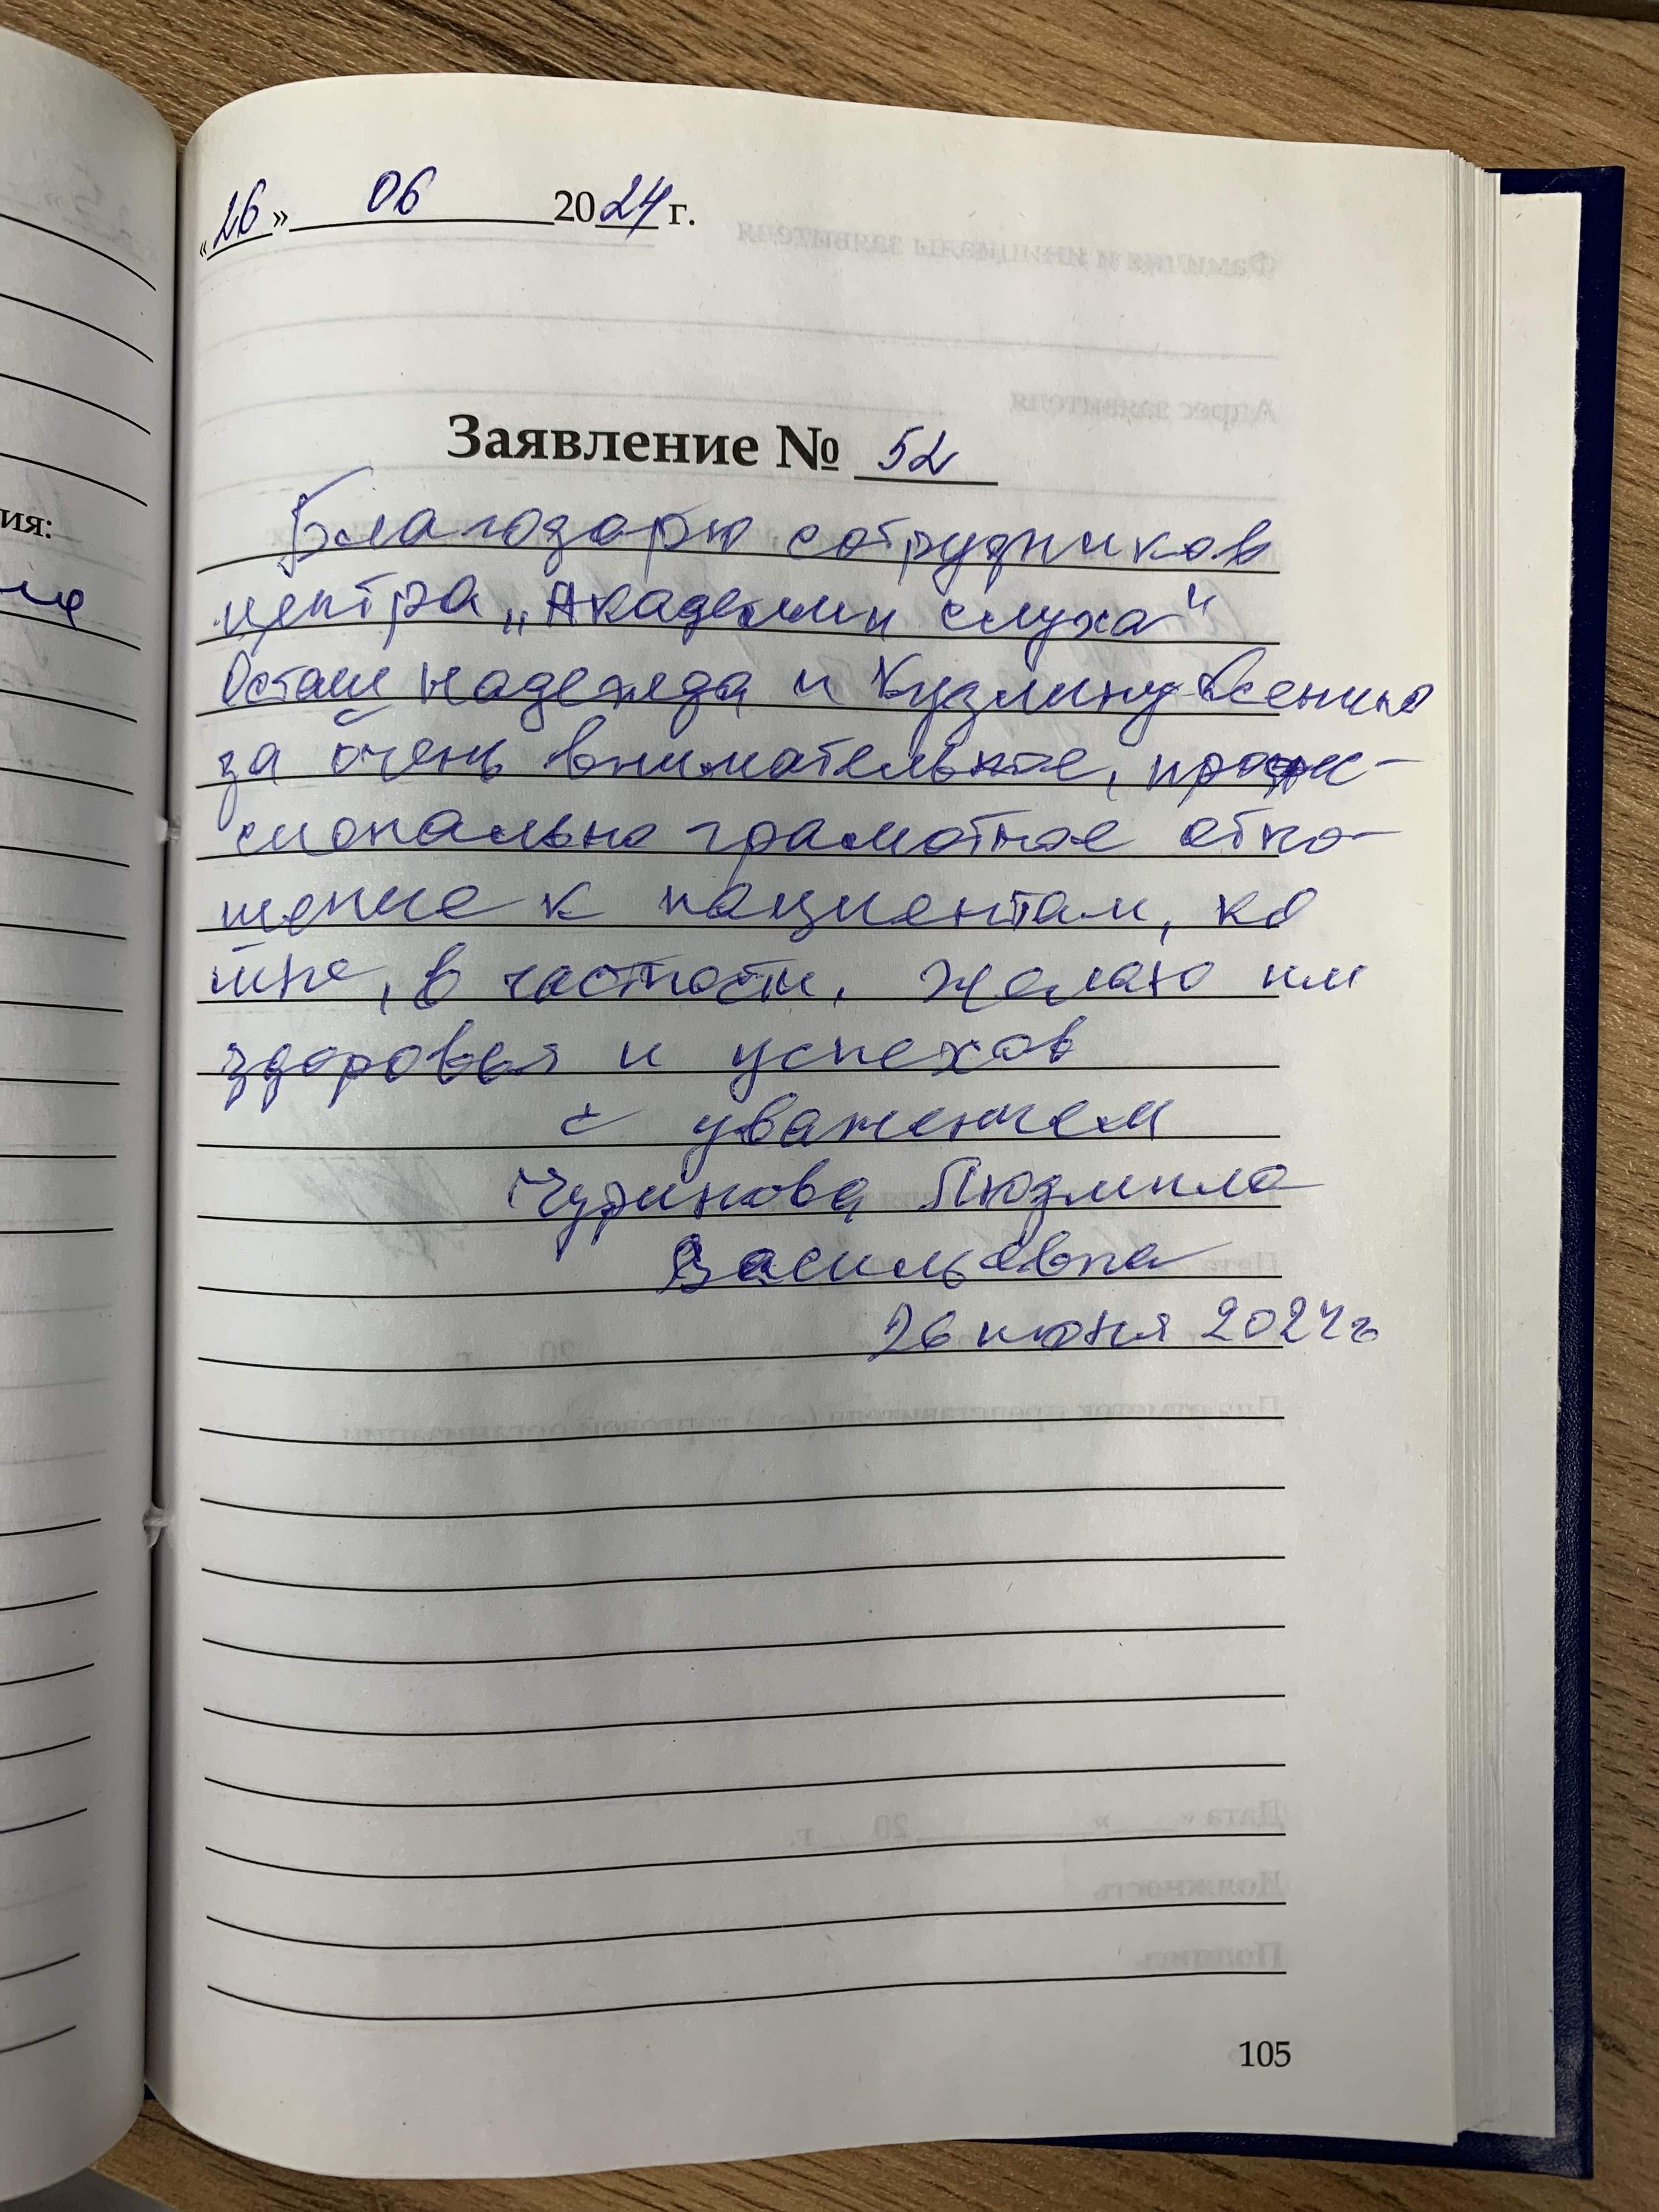 «26» 06 2024 г.
Заявление № 52
Благодарю сотрудников
центра „Академии слуха"
Осташ Надежда и Кузмину Ксению
за очень внимательное, профес-
сионально грамотное отно-
шение к пациентам, ко
мне, в частности. Желаю им
здоровья и успехов
с уважением
Людмила
Васильевна
26 июня 2024г
105
ия: